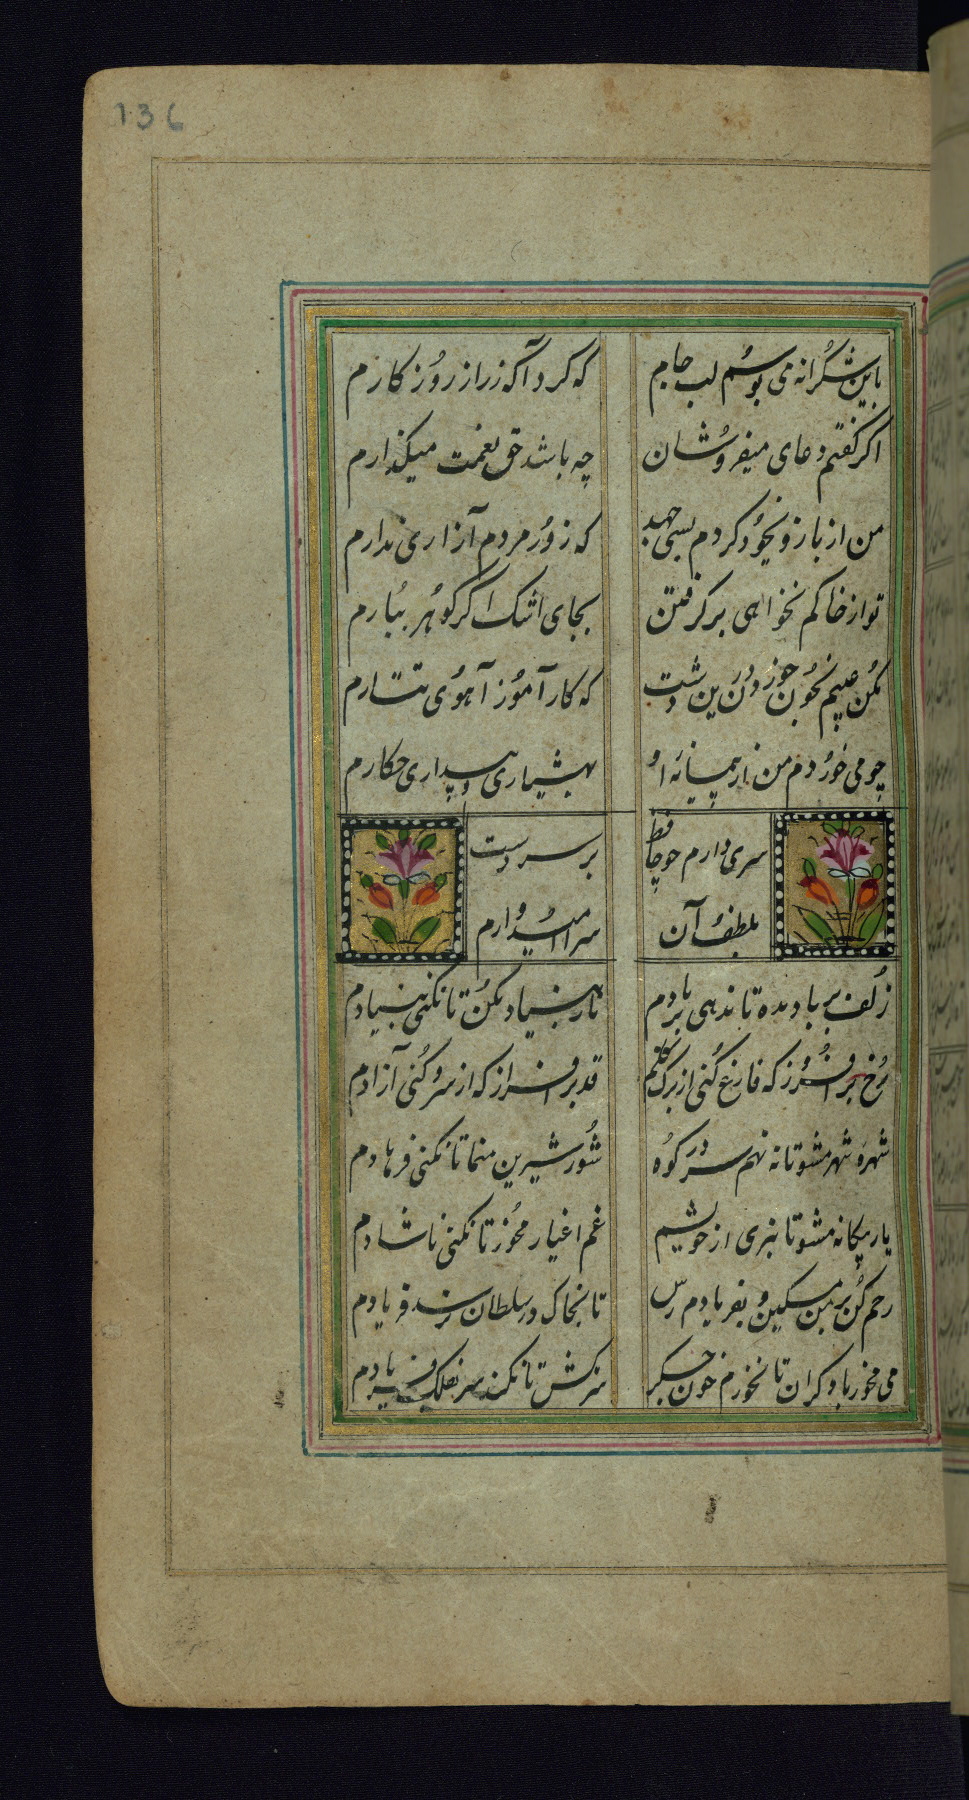 136
باین شکرانه می بوسم لب جام
که کرد آگه ز راز روزگارم
اگر گفتم دعای میفروشان
چه باشد حق نعمت میگذارم
من از بازو بخود کردم بسی جهد
که زور مردم آزاری ندارم
تو از خاکم نخواهی بر گرفتن
بجای اشک اگر گوهر ببارم
مکن عیبم بخون خوردن درین دشت
که کار آموز آهوی تتارم
چو می خوردم من از پیمانه او
بهشیاری و بیداری چکارم
سری دارم چو حافظ
بر سر دست
بلطف آن
سرا امیدوارم
زلف بر باد مده تا ندهی بر بادم
ناز بنیاد مکن تا نکنی بنیادم
رخ برافروز که فارغ کنی از برگ گلم
قد برافراز که از سرو کنی آزادم
شهره شهر مشو تا ننهم سر در کوه
شور شیرین منما تا نکنی فرهادم
یار بیگانه مشو تا نبری از خویشم
غم اغیار مخور تا نکنی ناشادم
رحم کن بر من مسکین و بفریادم رس
تا بخاک در سلطان نرسد فریادم
می مخور با دگران تا نخورم خون جگر
سر مکش تا نکند سر بفلک فریادم